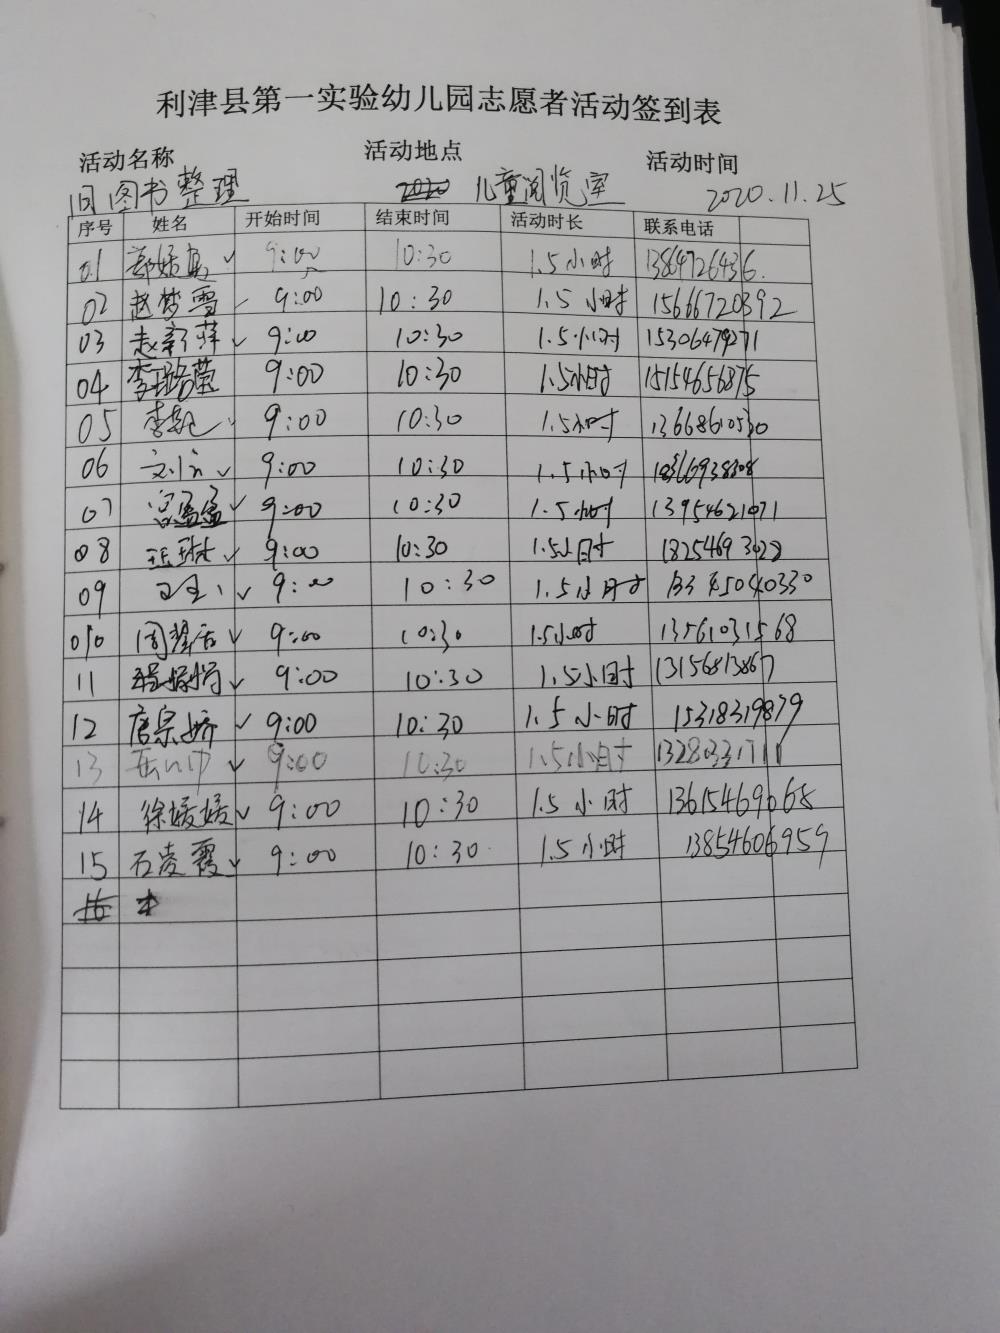 利津县第一实验幼儿园志愿者活动签到表
活动名称 活动地点 活动时间
旧图书整理 儿童阅览室 2020.11.25
序号 姓名 开始时间 结束时间 活动时长 联系电话
01 9:00 10:30 1.5小时
02 赵梦雪 9:00 10:30 1.5小时 15666720392
03 赵新萍 9:00 10:30 1.5小时 15306479271
04 李璐莹 9:00 10:30 1.5小时 15154656875
05 9:00 10:30 1.5小时 13668610530
06 9:00 10:30 1.5小时
07 宫盈盈 9:00 10:30 1.5小时 13954621071
08 9:00 10:30 1.5小时 18254693428
09 9:00 10:30 1.5小时
010 9:00 10:30 1.5小时 13561031568
11 程娟娟 9:00 10:30 1.5小时 13156813867
12 唐宗娇 9:00 10:30 1.5小时 15318319879
13 9:00 10:30 1.5小时 13280331711
14 徐媛媛 9:00 10:30 1.5小时 13615469068
15 石凌霞 9:00 10:30 1.5小时 13854606959